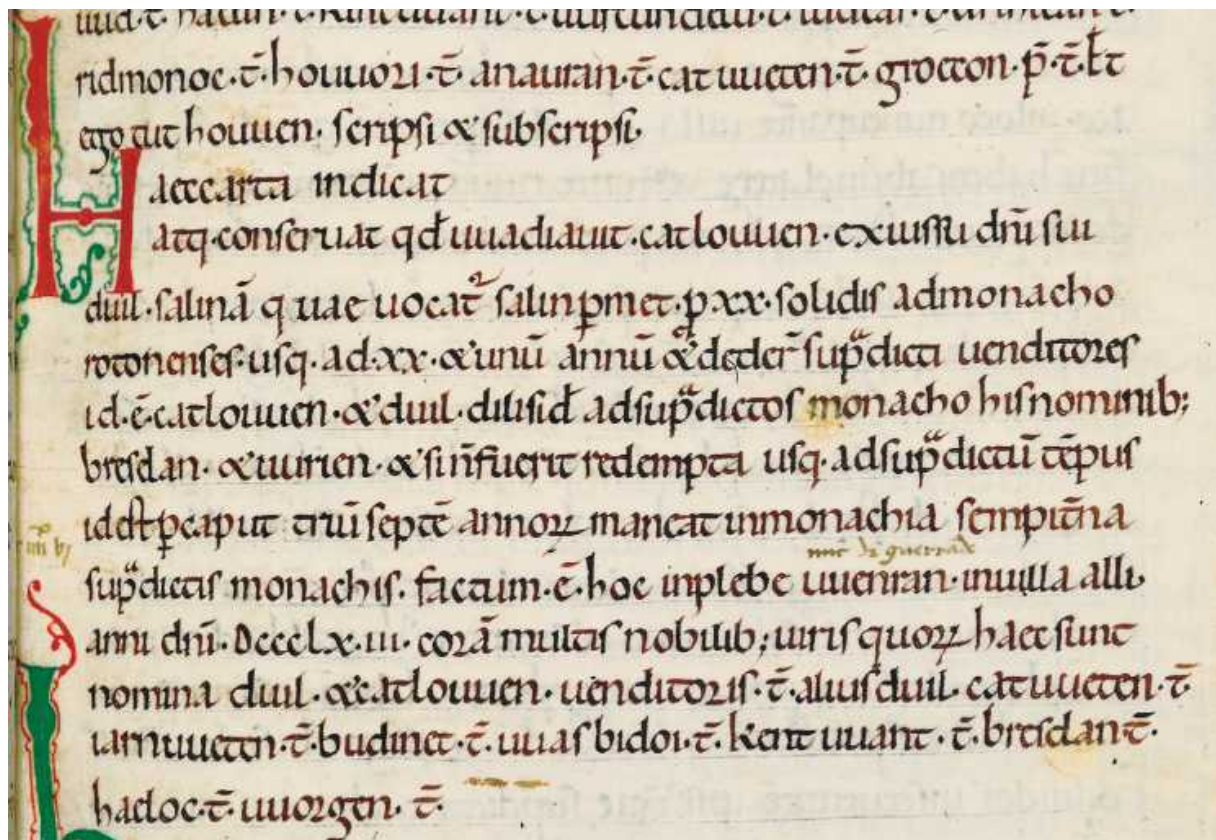 ridmonoc·t̄·houuori·t̄·anauran·t̄·catuueten·t̄·grocton·p̄·t̄·
ego cut houuen· scripsi & subscripsi·
Haeccarta indicat
atq·conseruat qđ uuadiauit·catlouuen·exiussu dn̄i sui
diuil·salinā quae uocat᷑ salinꝑmet·ꝑ·xx·solidis admonacho
rotonenses·usq·ad·xx·&unū annū & deder̄ sup̄dicti uenditores
id·ē·catlouuen·&diuil·dilisid̄ adsup̄dictos monacho hisnominib;
bresdan·&uurien·&sin̄fuerit redempta usq·adsup̄dictū tēpus
idest ꝑcaput triū septē annoꝝ maneat inmonachia sempit̄na
sup̄dictis monachis·factum·ē·hoc inplebe uuenran·inuilla alli·
anni dn̄i·Dccclx·iii·corā multis nobilib; uiris quoꝝ haec sunt
nomina diuil·&catlouuen·uenditoris·t̄·alius diuil·catuueten·t̄
iarnuueten·t̄·budinet·t̄·uuasbidoi·t̄·kentuuant·t̄·bresdan·t̄·
hadoc·t̄·uuorgen·t̄·